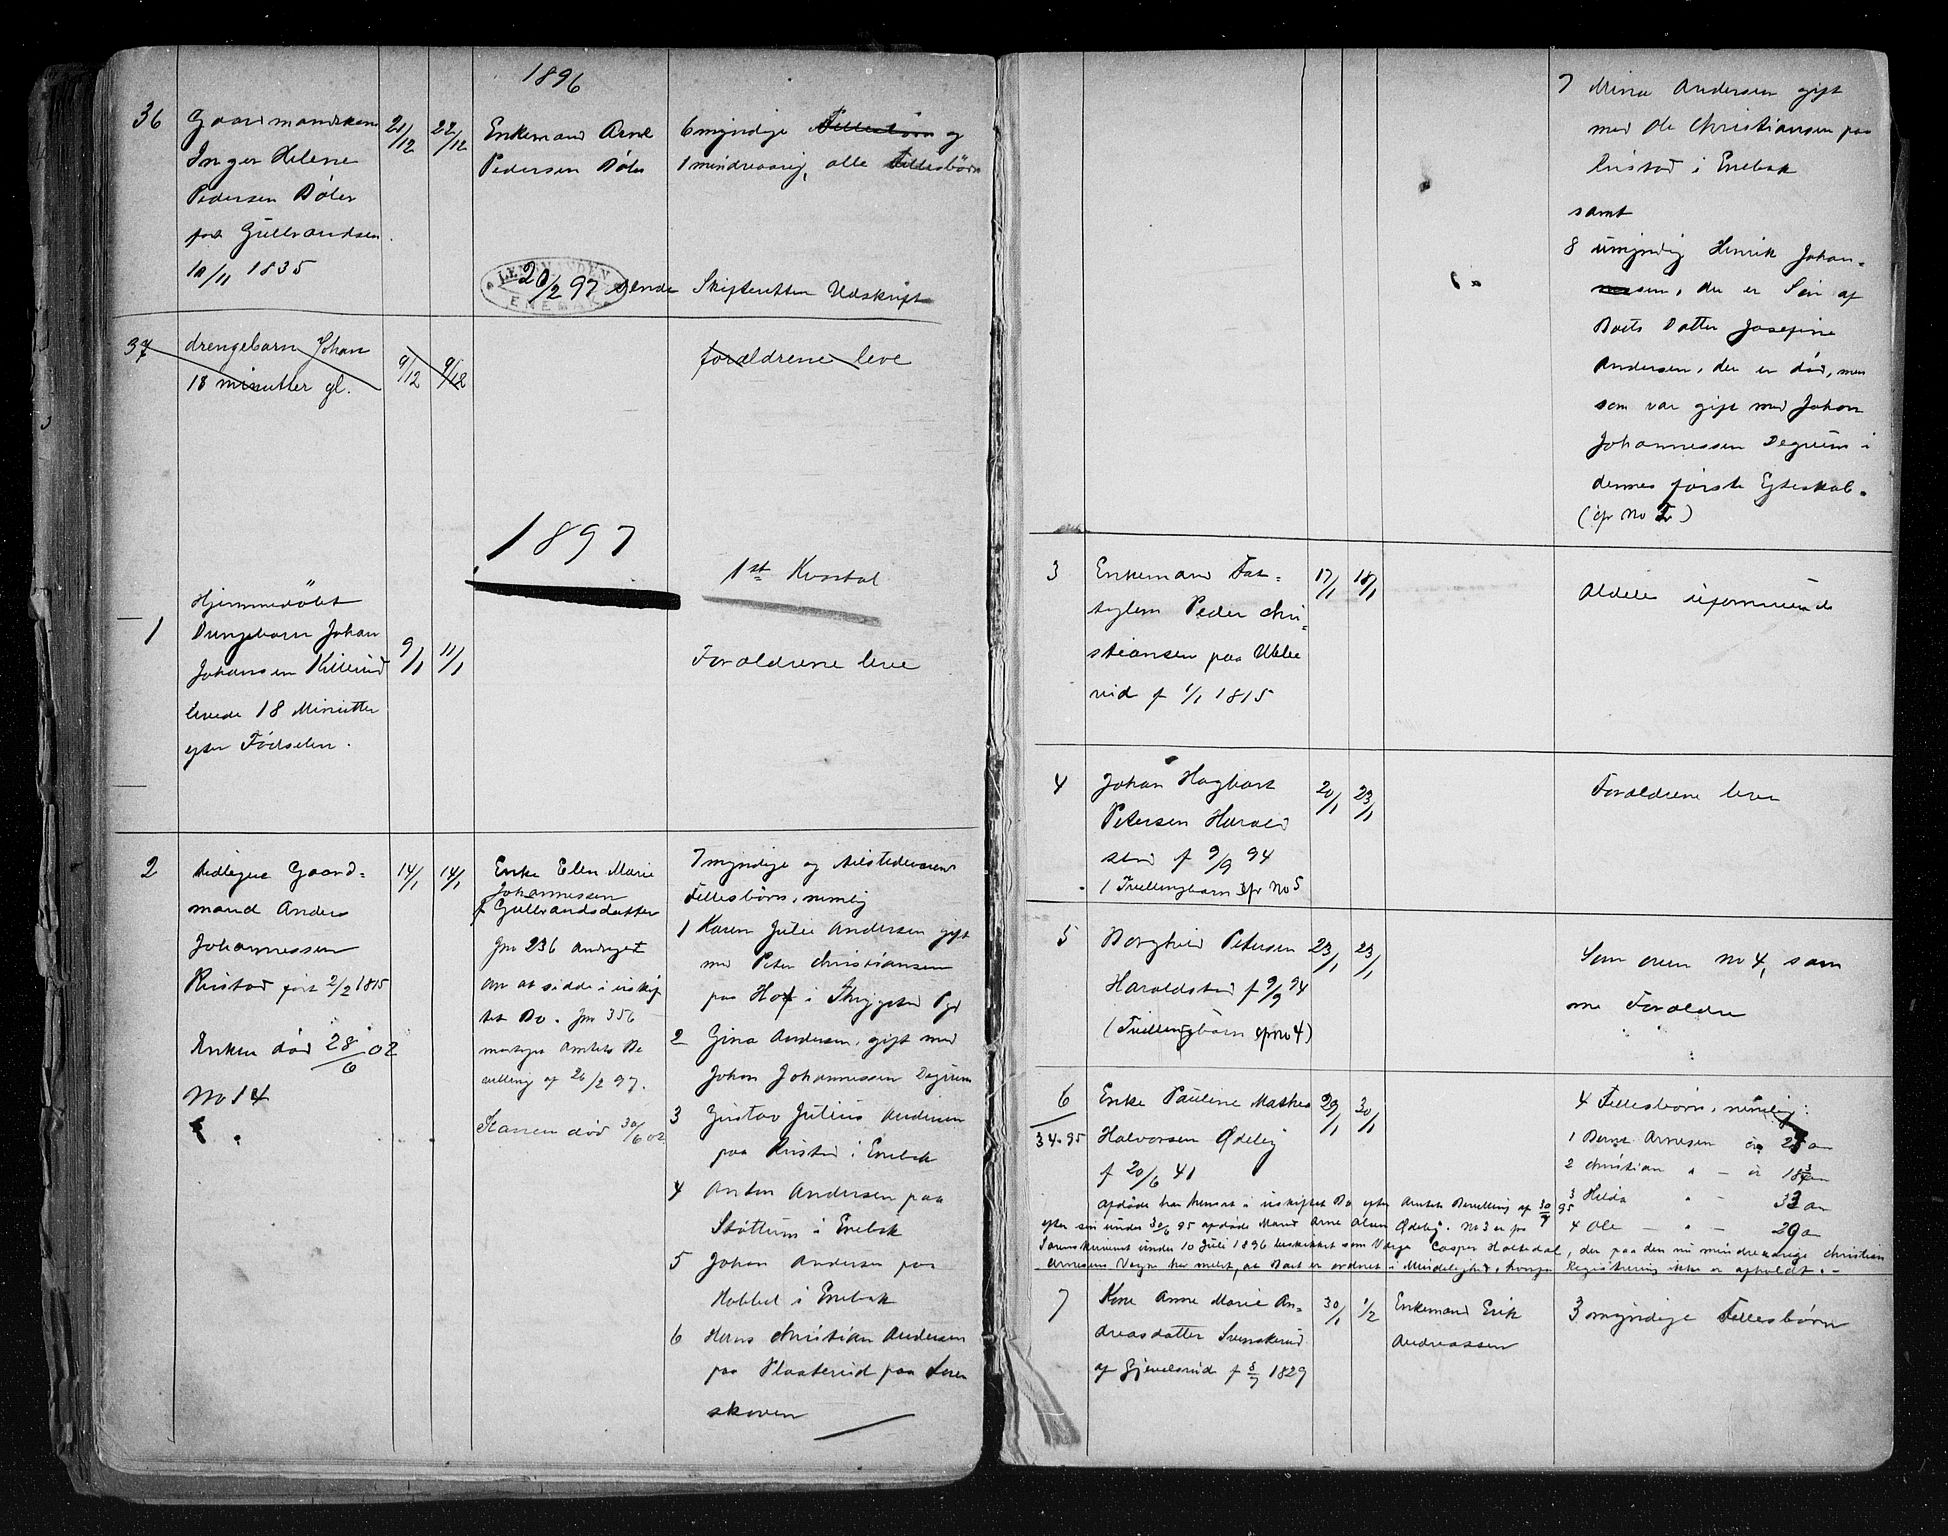 1896
36
Gaardmandskone
Inger Helene
Pedersen Böler
fra Gullrandsen
10/11 1835
21/12
22/12
Enkemand Arne
Pedersen Böler
6 myndige Fellesbörn og
1 mindreaarig, alle Fellesbörn
LENSMANDEN
ENEBAK
20/2 97 sendt Skifteretten Udskrift
37
drengebarn Johan
18 minutter gl.
9/12
9/12
forældrene leve
1897
1st Kvartal
1
Hjemmedöbt
Drengebarn Johan
Johansen Killerud
levede 18 Minutter
efter Födselen.
9/1
11/1
Forældrene leve
2
tidligere Gaard-
mand Anders
Johannessen
Ristad født 2/2 1815
Enken död 28/6 02
No 14
14/1
14/1
Enke Elen Marie
Johannessen
f Gulbrandsdatter
Jnr 236 andraget
om at sidde i uskif
tet Bo. Jnr 356
mottaget Amtets Be
villing af 26/2 97.
Karen död 30/6 02
7 myndige og tilstedeværende
Fellesbörn, nemlig
1 Karen Julie Andersen gift
med Peter Christiansen
paa Hof i Trygstad Pgd
2 Gina Andersen, gift med
Johan Johannessen Degrum
3 Gustav Julius Andersen
paa Ristad i Enebak
4 Anton Andersen paa
Støttum i Enebak
5 Johan Andersen paa
Hobbel i Enebak
6 Hans Christian Andersen
paa Plaaterud paa
skoven
7 Mina Andersen gift
med Ole Christiansen paa
Ristad i Enebak
samt
8 umyndig Henrik Johan-
sen, der er Sön af
Boets Datter Josefine
Andersen, der er död, men
som var gift med Johan
Johannessen Degrum i
dennes første Egteskab.
(cfr No 2)
3
Enkemand Fat-
tiglem Peder Chri-
stiansen paa
f 1/1 1815
17/1
18/1
Aldeles uformuende
4
Johan Hagbart
Petersen Harald
stad f 9/9 94
1 Tvillingbarn cfr No 5
20/1
23/1
Forældrene leve
5
Borghild Petersen
Haraldstad f 9/9 94
(Tvillingbarn cfr No 4)
23/1
23/1
Som oven No 4, sam
me Forældre
6
34-95
Enke Pauline Mathea
Halvorsen Ødelig
f 20/6 41
29/1
30/1
4 Fellesbörn, nemlig:
1 Bernt Arnesen
2 Christian
3 Hilda
4 Ole
afdöde har hensat i uskiftet Bo efter Amtets Bevilling af 30/7 95
efter sin under 30/6 95 afdöde Mand Arne Olsen Ødelig. No 3 er fra
Sorenskriveriet under 10 Juli 1896 beskikket som Verge Casper Holtedal, der paa den nu mindreaarige Christian
Arnesens Vegne har meldt, at Boet er ordnet i Mindelighed, hvorfor Registrering ikke er afholdt.
7
Kone Anne Marie An-
dreasdatter Svenskerud
af Gjevelsrud f 8/7 1829
30/1
1/2
Enkemand Erik
Andreassen
3 myndige Fellesbörn